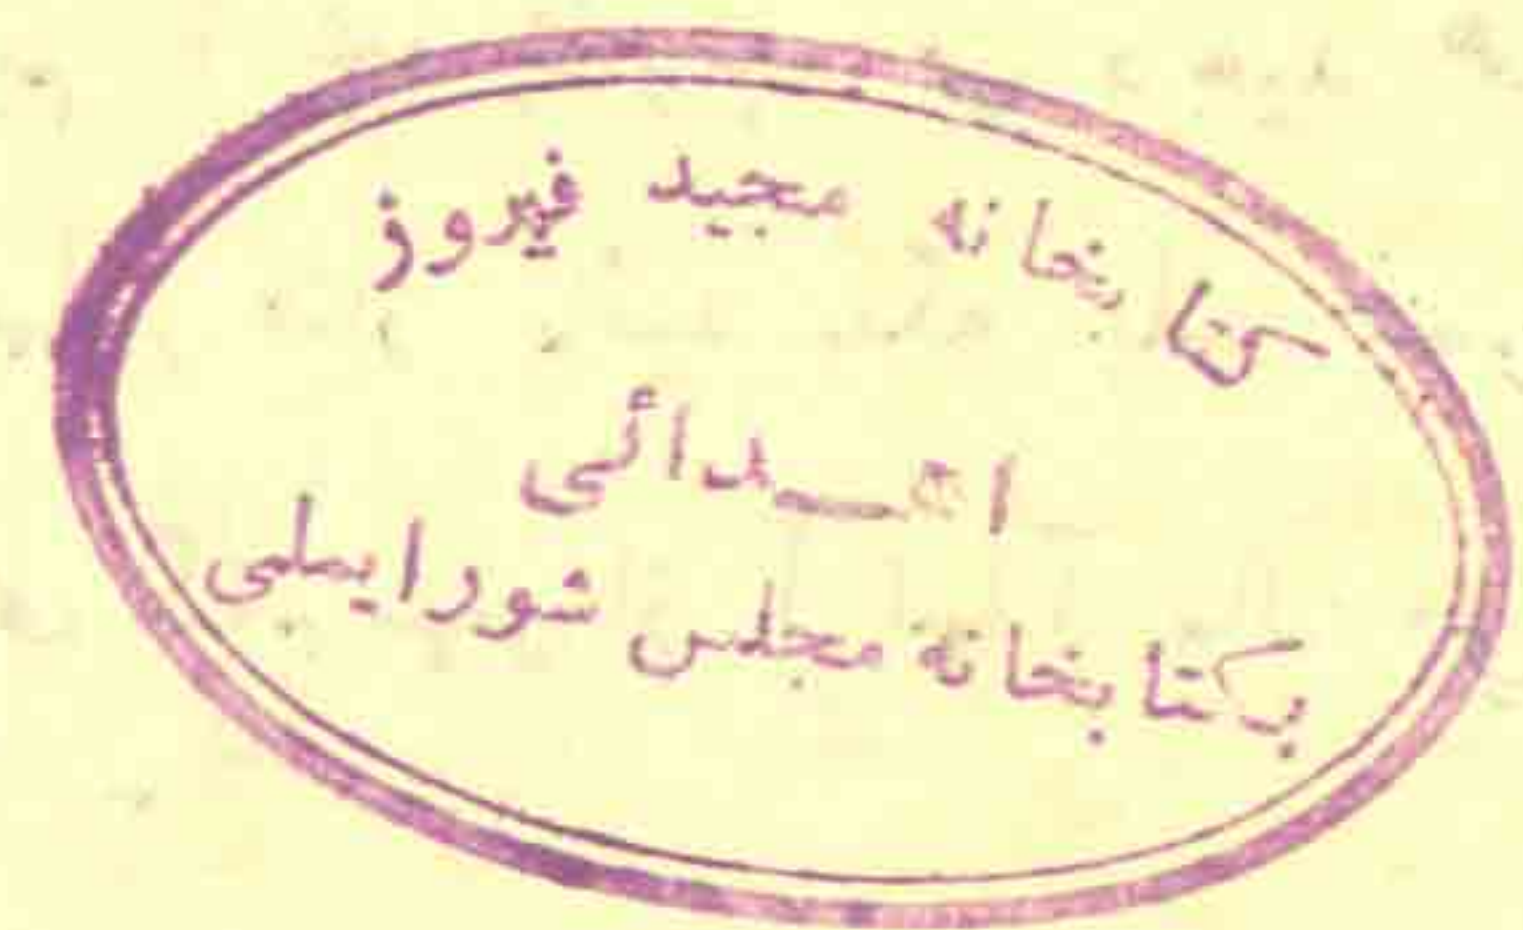 کتابخانه مجید فیروز
اهدائی
بکتابخانهٔ مجلس شورایملی